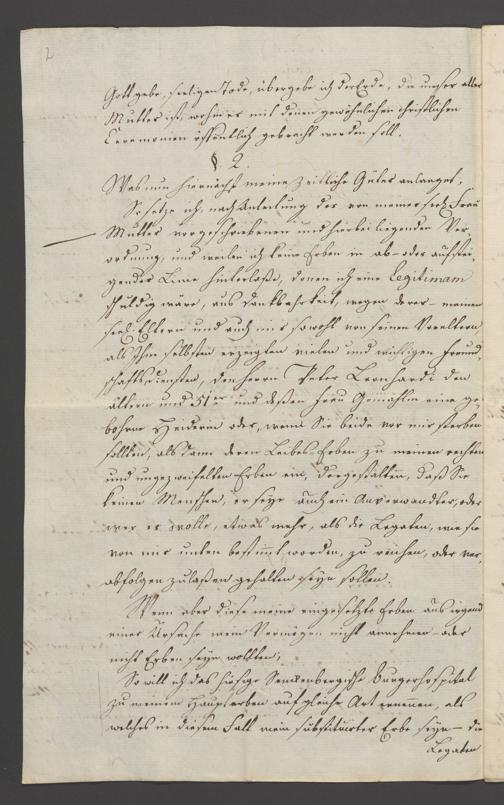 2
Gott gebe, seeligen Tode, übergebe ich der Erde, die unser aller
Mutter ist, wohin er mit denen gewöhnlichen christlichen
Ceremonien öffentlich gebracht werden soll.
§ 2.
Was nun hiernächst meine zeitliche Güter anlanget,
So setze ich, nach Anleitung der von meiner seel. Frau
Mutter vorgeschriebenen und hierbei liegenden Ver-
ordnung, und weilen ich keine Erben in ab- oder aufstei-
gender Linie hinterlaße, denen ich eine Legitimam
schuldig wäre, aus Dankbahrkeit, wegen derer meinen
seel. Eltern und auch mir sowohl von seinen Voreltern
als Ihm selbsten erzeigten vielen und wichtigen Freund-
schaftsdiensten, den Herrn Peter Leonhardi den
ältern und 51er und deßen Frau Gemahlin eine ge-
bohrne Heiderin oder, wenn Sie beide vor mir sterben
sollten, alsdann deren Leibes Erben zu meinen rechten
und ungezweifelten Erben ein, dergestalten, daß Sie
keinen Menschen, er seye auch ein Anverwandter, oder
wer er wolle, etwas mehr, als die Legaten, wie sie
von mir unten bestimt worden, zu reichen, oder ver-
abfolgen zulaßen gehalten seyn sollen.
Wenn aber diese meine eingesetzte Erben aus irgend
einer Ursache mein Vermögen nicht annehmen oder
nicht Erben seyn wollten,
So will ich das hiesige Senckenbergische Burgerhospital
zu meinem Haupterben auf gleiche Art ernenen, als
welches in diesem Fall mein substituirter Erbe seyn – die
Legaten